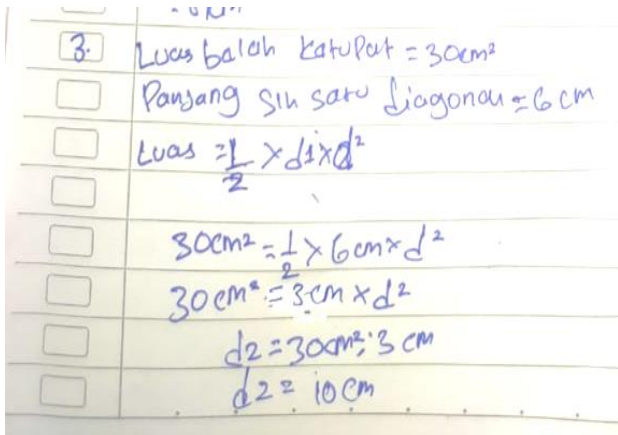 3. Luas balah katupat = 30cm²
Panjang sih satu diagonal = 6 cm
Luas = 1/2 × d1 × d²
30cm² = 1/2 × 6cm × d²
30cm² = 3cm × d2
d2 = 30cm² : 3 cm
d2 = 10 cm